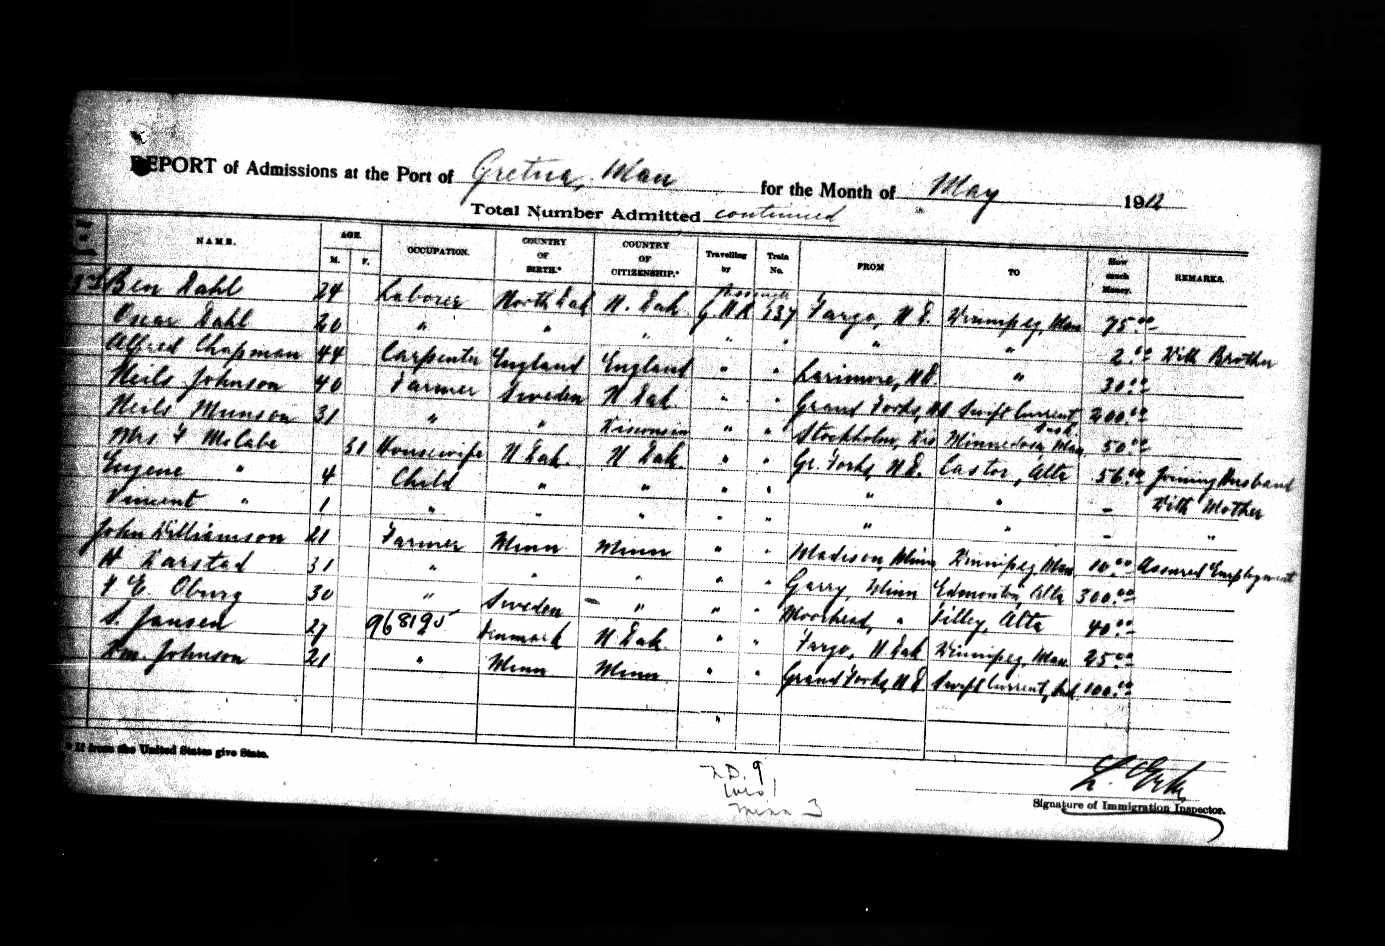 REPORT of Admissions at the Port of Gretna, Man for the Month of May 1912
Total Number Admitted continued
NAME. AGE. M. F. OCCUPATION. COUNTRY OF BIRTH.* COUNTRY OF CITIZENSHIP.* Travelling by Train No. FROM TO How much Money. REMARKS.
Ben Dahl 24 Laborer North Dak N. Dak G.N.R. 137 Fargo, N.D. Winnipeg, Man 75.00
Oscar Dahl 20 " " " " " " " 2.00 With Brother
Alfred Chapman 44 Carpenter England England " " Larimore, N.D. " 30.00
Neils Johnson 40 Farmer Sweden N Dak " " Grand Forks, ND Swift Current, Sask 200.00
Neils Munson 31 " " Wisconsin " " Stockholm, Wis Minnedosa, Man. 50.00
Mrs F McCabe 30 Housewife N Dak. N Dak " " Gr. Forks, N.D. Castor, Alta 56.00 Joining Husband
Eugene " 4 Child " " " " " " - With Mother
Vincent " 1 " " " " " " " - "
John Williamson 21 Farmer Minn Minn " " Madison Minn Winnipeg Man 10.00 Assured Employment
H Karstad 31 " " " " " Garry Minn Edmonton, Alta 300.00
F E Oburg 30 " Sweden " " " Moorhead, " Tilley, Alta 40.00
S. Jansen 27 968195 Denmark N Dak. " " Fargo, N Dak Winnipeg, Man. 25.00
Wm. Johnson 21 " Minn Minn " " Grand Forks, N D Swift Current, Sask 100.00
"
* If from the United States give State.
N.D. 9
Wis 1
Minn 3
Signature of Immigration Inspector.